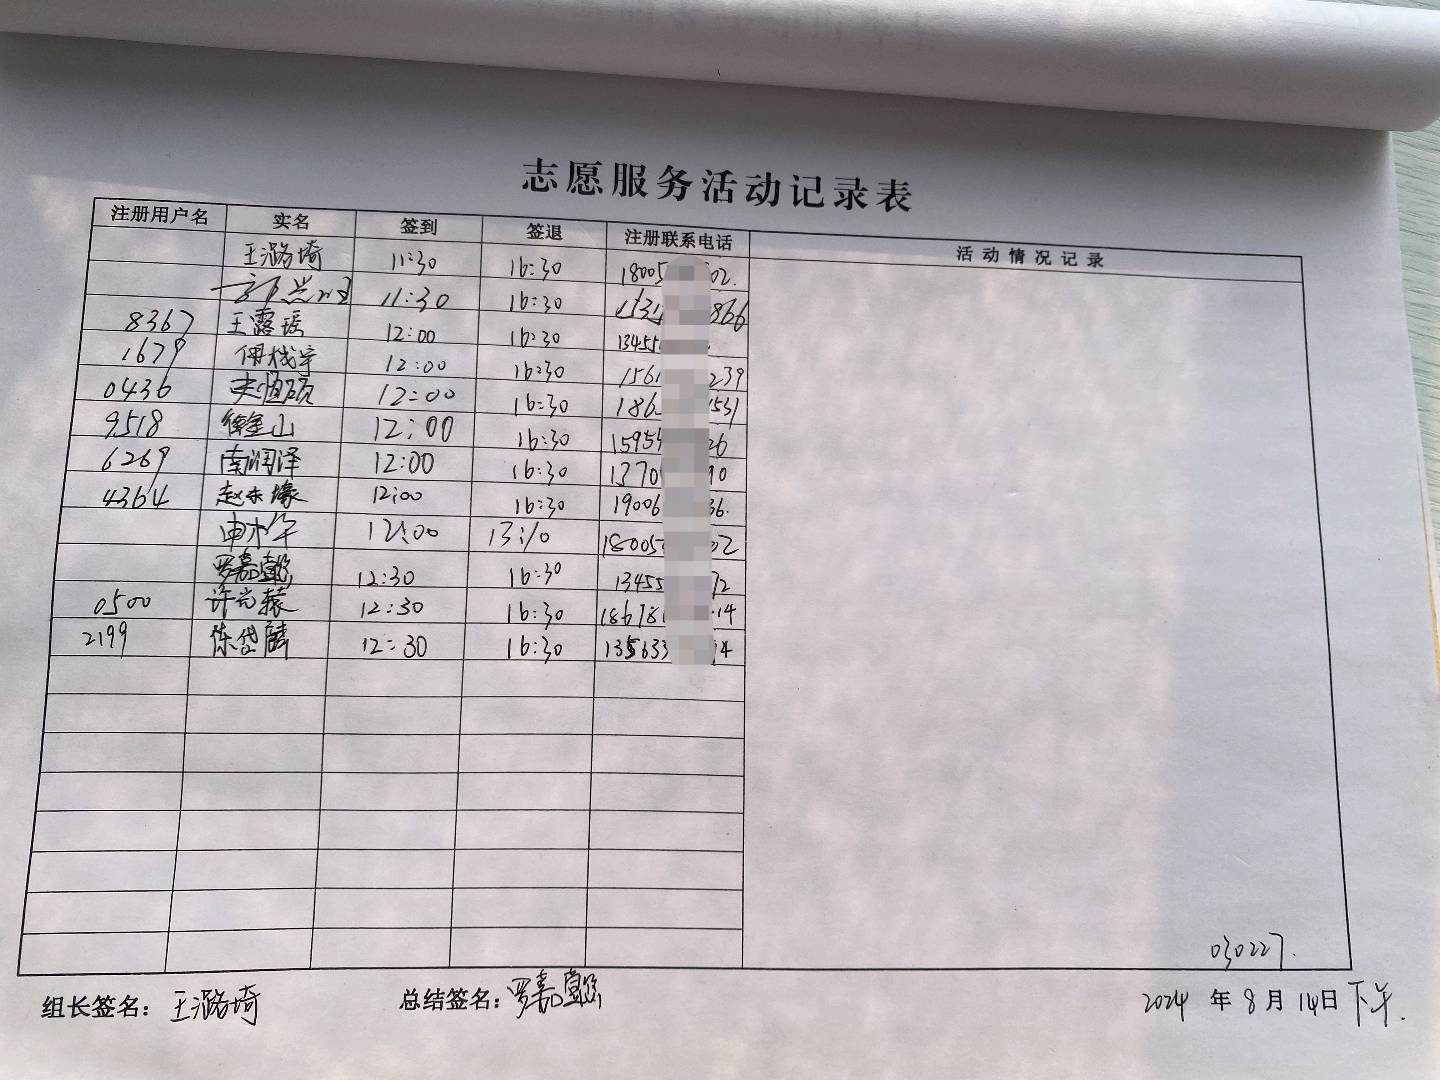 志愿服务活动记录表
注册用户名 实名 签到 签退 注册联系电话 活动情况记录
王潞埼 11:30 16:30 18005 02.
11:30 16:30 866
8367 王露瑶 12:00 16:30 13455
1679 12:00 16:30 1561 239
0436 12:00 16:30 186 531
9518 徐金山 12:00 16:30 1595 26
6269 南润泽 12:00 16:30 1370 90
4364 赵 12:00 16:30 19006 36.
申 12:00 13:10 18005 02
罗嘉懿 12:30 16:30 13455 72
0500 许 12:30 16:30 18678 14
2199 陈岱麟 12:30 16:30 135633 14
030227.
组长签名：王潞埼 总结签名：罗嘉懿 2024 年 8 月 14日 下午.